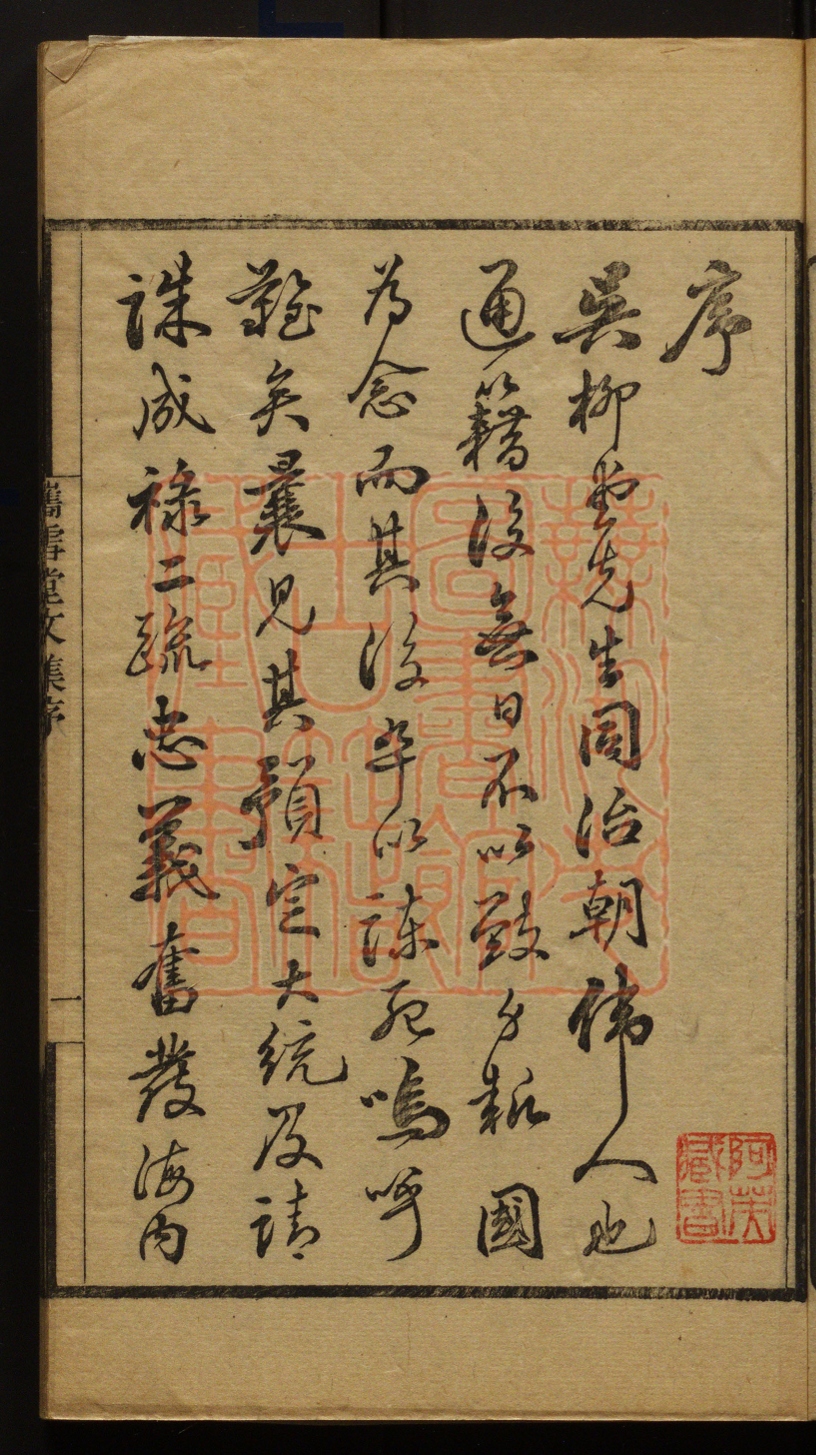 序
吳柳堂先生同治朝偉人也
通籍後無日不以致身報國
為念而其後卒以諫死嗚呼
難矣曩見其預定大統及請
誅成祿二疏忠義奮發海內
攜雪堂文集序
一
阿英藏書